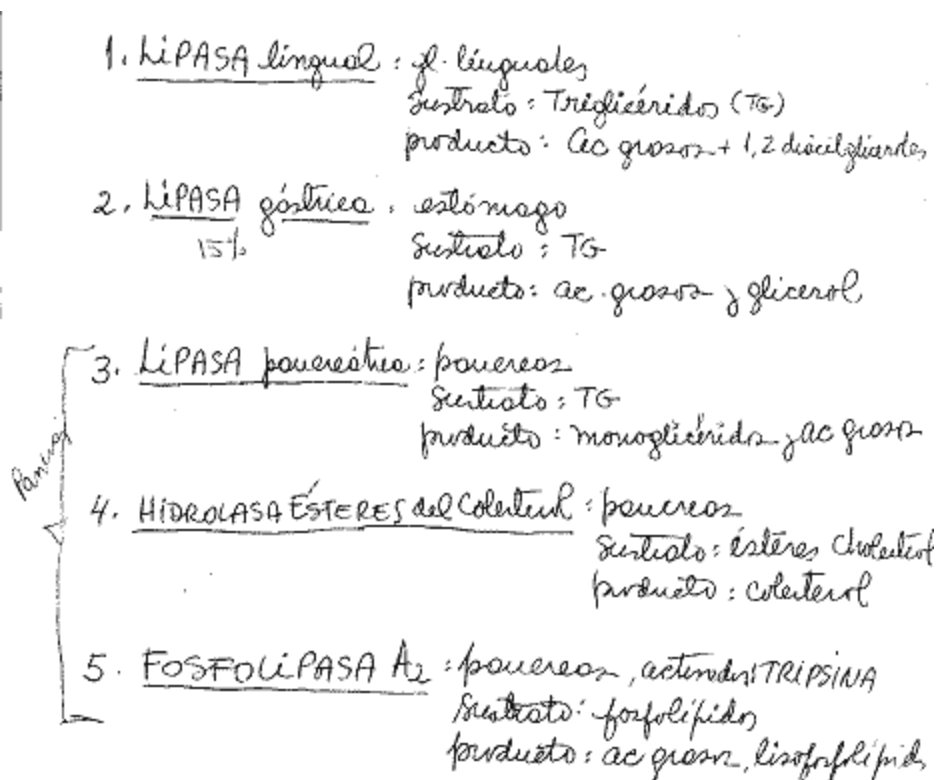 1. LiPASA lingual : gl. linguales
sustrato : Triglicéridos (TG)
producto : ac grasos + 1,2 diacilgliceroles
2. LiPASA gástrica : estómago
15%
sustrato : TG
producto : ac. grasos y glicerol
3. LiPASA pancreática : pancreas
sustrato : TG
producto : monoglicéridos y ac grasos
Pancreas
4. HIDROLASA ÉSTERES del Colesterol : pancreas
sustrato : ésteres Cholesterol
producto : colesterol
5. FOSFOLiPASA A2 : pancreas, TRIPSINA
sustrato : fosfolípidos
producto : ac grasos, lisofosfolípidos